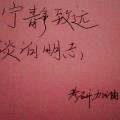 宁静致远
淡泊明志